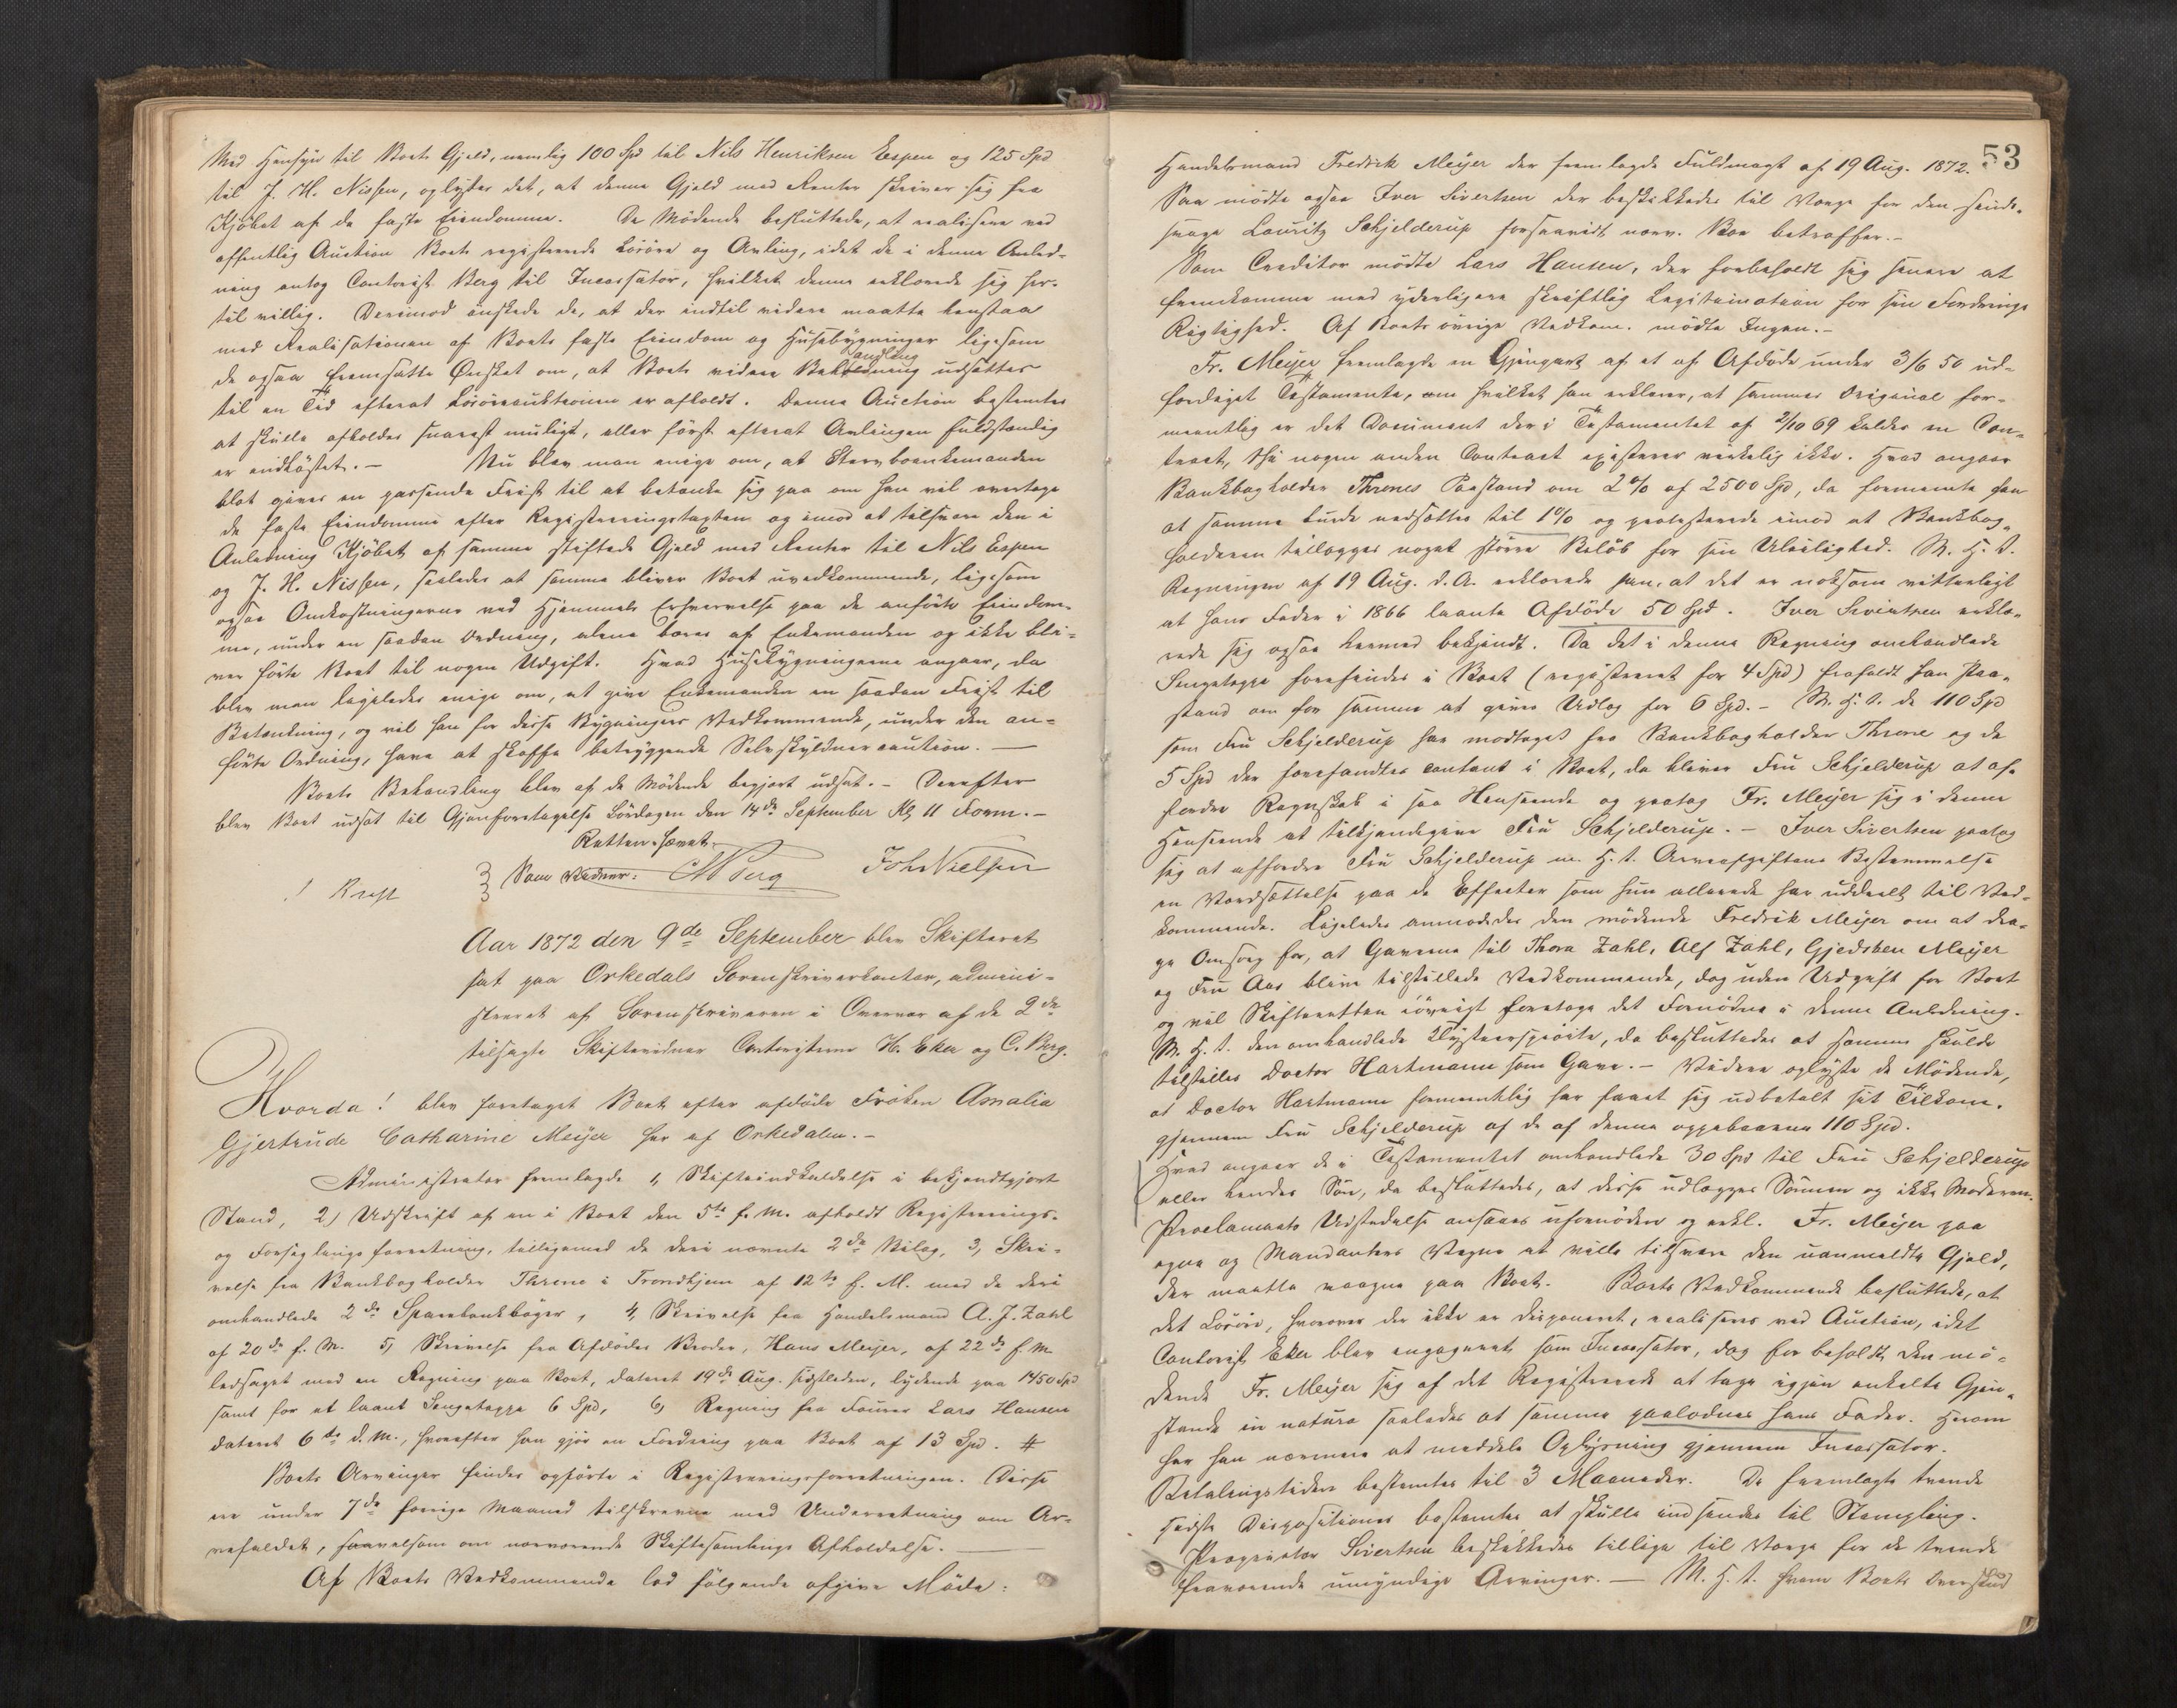 Med Hensyn til Boets Gjeld, nemlig 100 Spd til Nils Henriksen Espen og 125 Spd
til J. H. Nissen, oplystes det, at denne Gjeld med Renter skriver sig fra
Kjöbet af de faste Eiendomme. De Mödende besluttede, at realisere ved
offentlig Auction Boets registrerede Lösöre og Avling, idet de i denne Anled-
ning antog Contorist Berg til Incassator, hvilket denne erklærede sig her-
til villig. Derimod önskede de, at der indtil videre maatte henstaa
med Realisationen af Boets faste Eiendom og Husebygninger ligesom
de ogsaa fremsatte Ønsket om, at Boets videre Behandling udsættes
til en Tid efterat Lösöreauktionen er afholdt. Denne Auction bestemtes
at skulle afholdes snarest muligt, eller först efterat Avlingen fuldstændig
er indhöstet. – Nu blev man enige om, at Stervboenkemanden
blot gives en passende Frist til at betænke sig paa om han vil overtage
de faste Eiendomme efter Registreringstaxten og imod at tilsvare den i
Anledning Kjöbet af samme stiftede Gjeld med Renter til Nils Espen
og J. H. Nissen, saaledes at samme bliver Boet uvedkommende, ligesom
ogsaa Omkostningerne ved Hjemmels Erhvervelse paa de anförte Eiendom-
me, under en saadan Ordning, alene bæres af Enkemanden og ikke bli-
ver förte Boet til nogen Udgift. Hvad Husebygningerne angaar, da
blev man ligeledes enige om, at give Enkemanden en saadan Frist til
Betænkning, og vil han for disse Bygningers Vedkommende, under den an-
förte Ordning, have at skaffe betryggende Selvskyldnercaution. —
Boets Behandling blev af de Mödende begjært udsat. – Derefter
blev Boet udsat til Gjenforetagelse Lördagen den 14de September Kl 11 Form. –
Retten hævet.
Som Vidner: Berg Joh Nielsen
Aar 1872 den 9de September blev Skifteret
sat paa Orkedals Sorenskriverkontor, admini-
streret af Sorenskriveren i Overvær af de 2de
tilsagte Skiftevidner Contoristerne H. Eker og C. Berg.
Hvorda! blev foretaget Boet efter afdöde Fröken Amalia
Gjertrude Catharine Meijer her af Orkedalen. –
Administrator fremlagde 1, Skifteindkaldelse i bekjendtgjort
Stand, 2) Udskrift af en i Boet den 5te f. M. afholdt Registrerings-
og Forseglingsforretning, tilligemed de deri nævnte 2de Bilag, 3, Skri-
velse fra Bankbogholder Throne i Trondhjem af 12te f. M. med de deri
omhandlede 2de Sparebankböger, 4, Skrivelse fra Handelsmand A. J. Zahl
af 20de f. M. 5) Skrivelse fra Afdödes Broder, Hans Meijer, af 22de f. M.
ledsaget med en Regning paa Boet, dateret 19de Aug. sidstleden, lydende paa 1450 Spd
samt for et laant Sengetæppe 6 Spd, 6, Regning fra Lars Hansen
dateret 6te d. M., hvorefter han gjör en Fordring paa Boet af 13 Spd. #
Boets Arvinger findes opförte i Registreringsforretningen. Disse
ere under 7de forrige Maaned tilskrevne med Underretning om Ar-
vefaldet, saavelsom om nærværende Skiftesamlings Afholdelse. —
Af Boets Vedkommende lod fölgende afgive Möde:
53
Handelsmand Fredrik Meijer der fremlagde Fuldmagt af 19 Aug. 1872.
Saa mödte ogsaa Iver Sivertsen der beskikkedes til Værge for den sinds-
svage Lauritz Schjelderup forsaavidt nærv. Boe betræffer. –
Som Creditor mödte Lars Hansen, der forbeholdt sig senere at
fremkomme med yderligere skriftlig Legitimation for sin Fordrings
Rigtighed. Af Boets övrige Vedkom. mödte Ingen. –
Fr. Meijer fremlagde en Gjenpart af et af Afdöde under 3/6 50 ud-
færdiget Testamente, om hvilket han erklærer, at sammes Original for-
mentlig er det Document der i Testamentet af 2/10 69 kaldes en Con-
tract, thi nogen anden Contract existerer virkelig ikke. Hvad angaar
Bankbogholder Thrones Paastand om 2% af 2500 Spd, da formente han
at samme burde nedsættes til 1% og protesterede imod at Bankbog-
holderen tillægges noget större Belöb for sin Uleilighed. M. H. t.
Regningen af 19 Aug. d. A. erklærede han, at det er noksom vitterligt
at hans Fader i 1866 laante Afdöde 50 Spd. Iver Sivertsen erklæ-
rede sig ogsaa hermed bekjendt. Da det i denne Regning omhandlede
Sengetæppe forefindes i Boet (registreret for 4 Spd) frafaldt han Paa-
stand om for samme at gives Udlæg for 6 Spd. – M. H. t. de 110 Spd
som Fru Schjelderup har modtaget fra Bankbogholder Throne og de
5 Spd der forefandtes contant i Boet, da bliver Fru Schjelderup at af-
fordre Regnskab i saa Henseende og paatog Fr. Meijer sig i denne
Henseende at tilkjendegive Fru Schjelderup. – Iver Sivertsen paatog
sig at affordre Fru Schjelderup m. H. t. Arveafgiftens Bestemmelse
en Værdsættelse paa de Effecter som hun allerede har uddeelt til Ved-
kommende. Ligeledes anmodedes den mödende Fredrik Meijer om at dra-
ge Omsorg for, at Gaverne til Thora Zahl, Alf Zahl, Gjedsken Meijer
og Fru Aas blive tilstillede Vedkommende, dog uden Udgift for Boet
og vil Skifteretten iövrigt foretage det Fornödne i denne Anledning.
M. H. t. den omhandlede Klysteerspröite, da besluttedes at samme skulde
tilstilles Doctor Hartmann som Gave. – Videre oplyste de Mödende,
at Doctor Hartmann formentlig har faaet sig udbetalt sit Tilkom.
gjennem Fru Schjelderup af de af denne oppebaarne 110 Spd.
Hvad angaar de i Testamentet omhandlede 30 Spd til Fru Schjelderup
eller hendes Sön, da besluttedes, at disse udlægges Sönnen og ikke Moderen.
Proclamaets Udstedelse ansaaes ufornöden og erkl. Fr. Meijer paa
egne og Mandanters Vegne at ville tilsvare den uanmeldte Gjeld,
der maatte paa Boet. Boets Vedkommende besluttede, at
det Lösöre, hvorover der ikke er disponeret, realiseres ved Auction, idet
Contorist Eker blev engageret som Incassator, dog forbeholdt den mö-
dende Fr. Meijer sig af det Registrerede at tage igjen enkelte Gjen-
stande in natura saaledes at samme paalodnes hans Fader. Herom
har han nærmere at meddele Oplysning gjennem Incassator.
Betalingstiden bestemtes til 3 Maaneder. De fremlagte tvende
sidste Dispositioner bestemtes at skulle indsendes til Stempling.
Proprietær Sivertsen beskikkedes tillige til Værge for de tvende
fraværende umyndige Arvinger. — M. H. t. hvem Boets Overskud